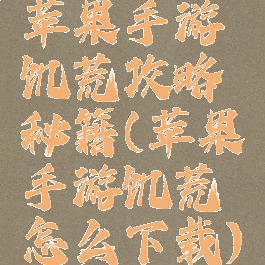 苹果手游
饥荒攻略
秘籍(苹果
手游饥荒
怎么下载)